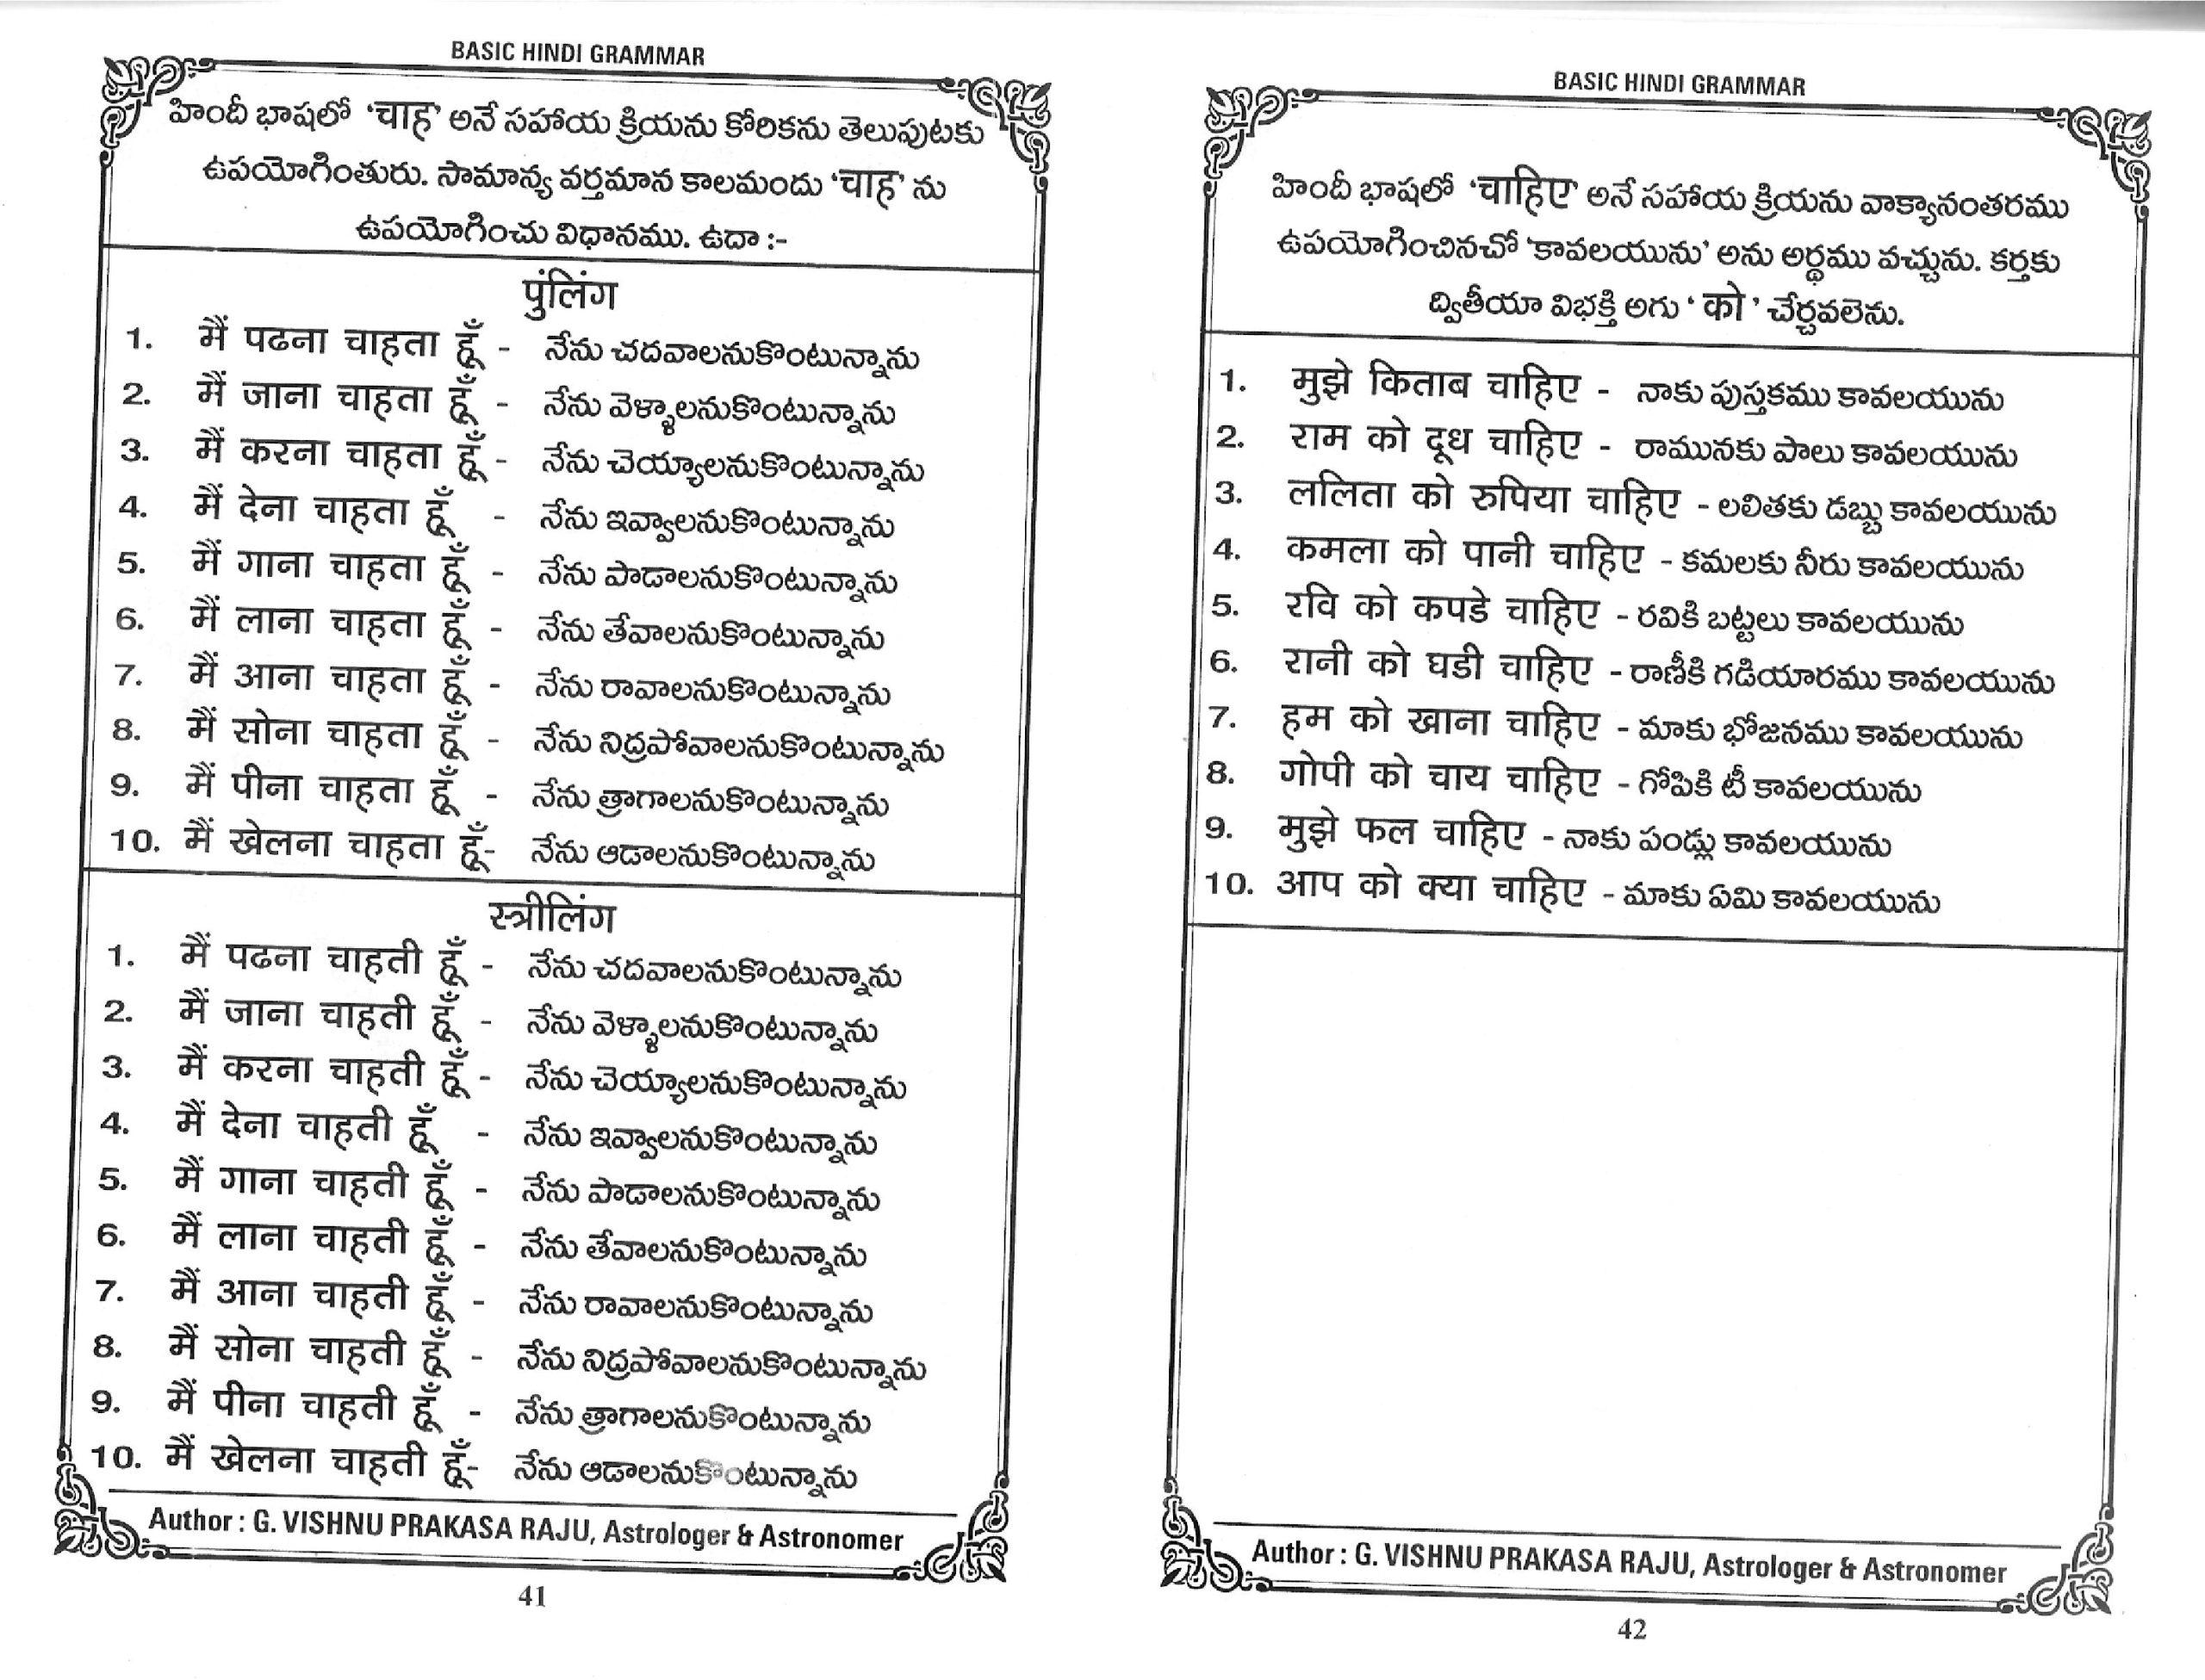 BASIC HINDI GRAMMAR
హిందీ భాషలో ‘चाह’ అనే సహాయ క్రియను కోరికను తెలుపుటకు
ఉపయోగింతురు. సామాన్య వర్తమాన కాలమందు ‘चाह’ ను
ఉపయోగించు విధానము. ఉదా :-
पुंलिंग
1. मैं पढना चाहता हूँ - నేను చదవాలనుకొంటున్నాను
2. मैं जाना चाहता हूँ - నేను వెళ్ళాలనుకొంటున్నాను
3. मैं करना चाहता हूँ - నేను చెయ్యాలనుకొంటున్నాను
4. मैं देना चाहता हूँ - నేను ఇవ్వాలనుకొంటున్నాను
5. मैं गाना चाहता हूँ - నేను పాడాలనుకొంటున్నాను
6. मैं लाना चाहता हूँ - నేను తేవాలనుకొంటున్నాను
7. मैं आना चाहता हूँ - నేను రావాలనుకొంటున్నాను
8. मैं सोना चाहता हूँ - నేను నిద్రపోవాలనుకొంటున్నాను
9. मैं पीना चाहता हूँ - నేను త్రాగాలనుకొంటున్నాను
10. मैं खेलना चाहता हूँ- నేను ఆడాలనుకొంటున్నాను
स्त्रीलिंग
1. मैं पढना चाहती हूँ - నేను చదవాలనుకొంటున్నాను
2. मैं जाना चाहती हूँ - నేను వెళ్ళాలనుకొంటున్నాను
3. मैं करना चाहती हूँ - నేను చెయ్యాలనుకొంటున్నాను
4. मैं देना चाहती हूँ - నేను ఇవ్వాలనుకొంటున్నాను
5. मैं गाना चाहती हूँ - నేను పాడాలనుకొంటున్నాను
6. मैं लाना चाहती हूँ - నేను తేవాలనుకొంటున్నాను
7. मैं आना चाहती हूँ - నేను రావాలనుకొంటున్నాను
8. मैं सोना चाहती हूँ - నేను నిద్రపోవాలనుకొంటున్నాను
9. मैं पीना चाहती हूँ - నేను త్రాగాలనుకొంటున్నాను
10. मैं खेलना चाहती हूँ- నేను ఆడాలనుకొంటున్నాను
Author : G. VISHNU PRAKASA RAJU, Astrologer & Astronomer
41
BASIC HINDI GRAMMAR
హిందీ భాషలో ‘चाहिए’ అనే సహాయ క్రియను వాక్యానంతరము
ఉపయోగించినచో ‘కావలయును’ అను అర్థము వచ్చును. కర్తకు
ద్వితీయా విభక్తి అగు ‘ को ’ చేర్చవలెను.
1. मुझे किताब चाहिए - నాకు పుస్తకము కావలయును
2. राम को दूध चाहिए - రామునకు పాలు కావలయును
3. ललिता को रुपिया चाहिए - లలితకు డబ్బు కావలయును
4. कमला को पानी चाहिए - కమలకు నీరు కావలయును
5. रवि को कपडे चाहिए - రవికి బట్టలు కావలయును
6. रानी को घडी चाहिए - రాణీకి గడియారము కావలయును
7. हम को खाना चाहिए - మాకు భోజనము కావలయును
8. गोपी को चाय चाहिए - గోపికి టీ కావలయును
9. मुझे फल चाहिए - నాకు పండ్లు కావలయును
10. आप को क्या चाहिए - మాకు ఏమి కావలయును
Author : G. VISHNU PRAKASA RAJU, Astrologer & Astronomer
42